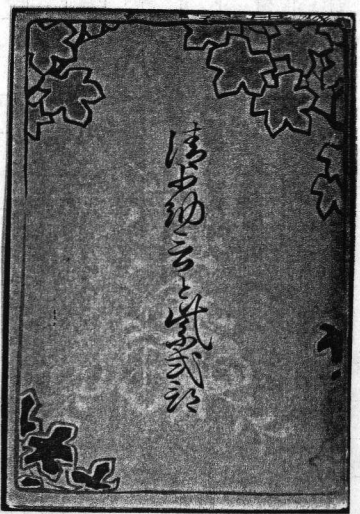 清少納言と紫式部